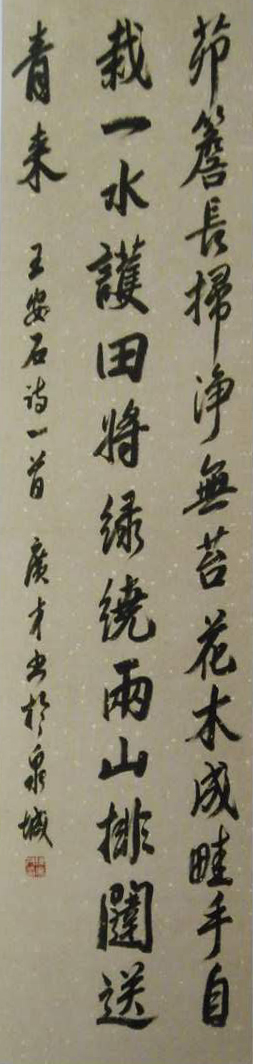 茆簷長掃净無苔花木成畦手自
栽一水護田將緑繞兩山排闥送
青来 王安石诗一首 廣才书於泉城